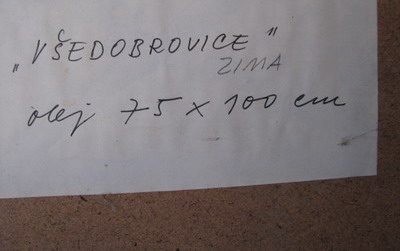 „VŠEDOBROVICE"
ZIMA
olej 75 x 100 cm